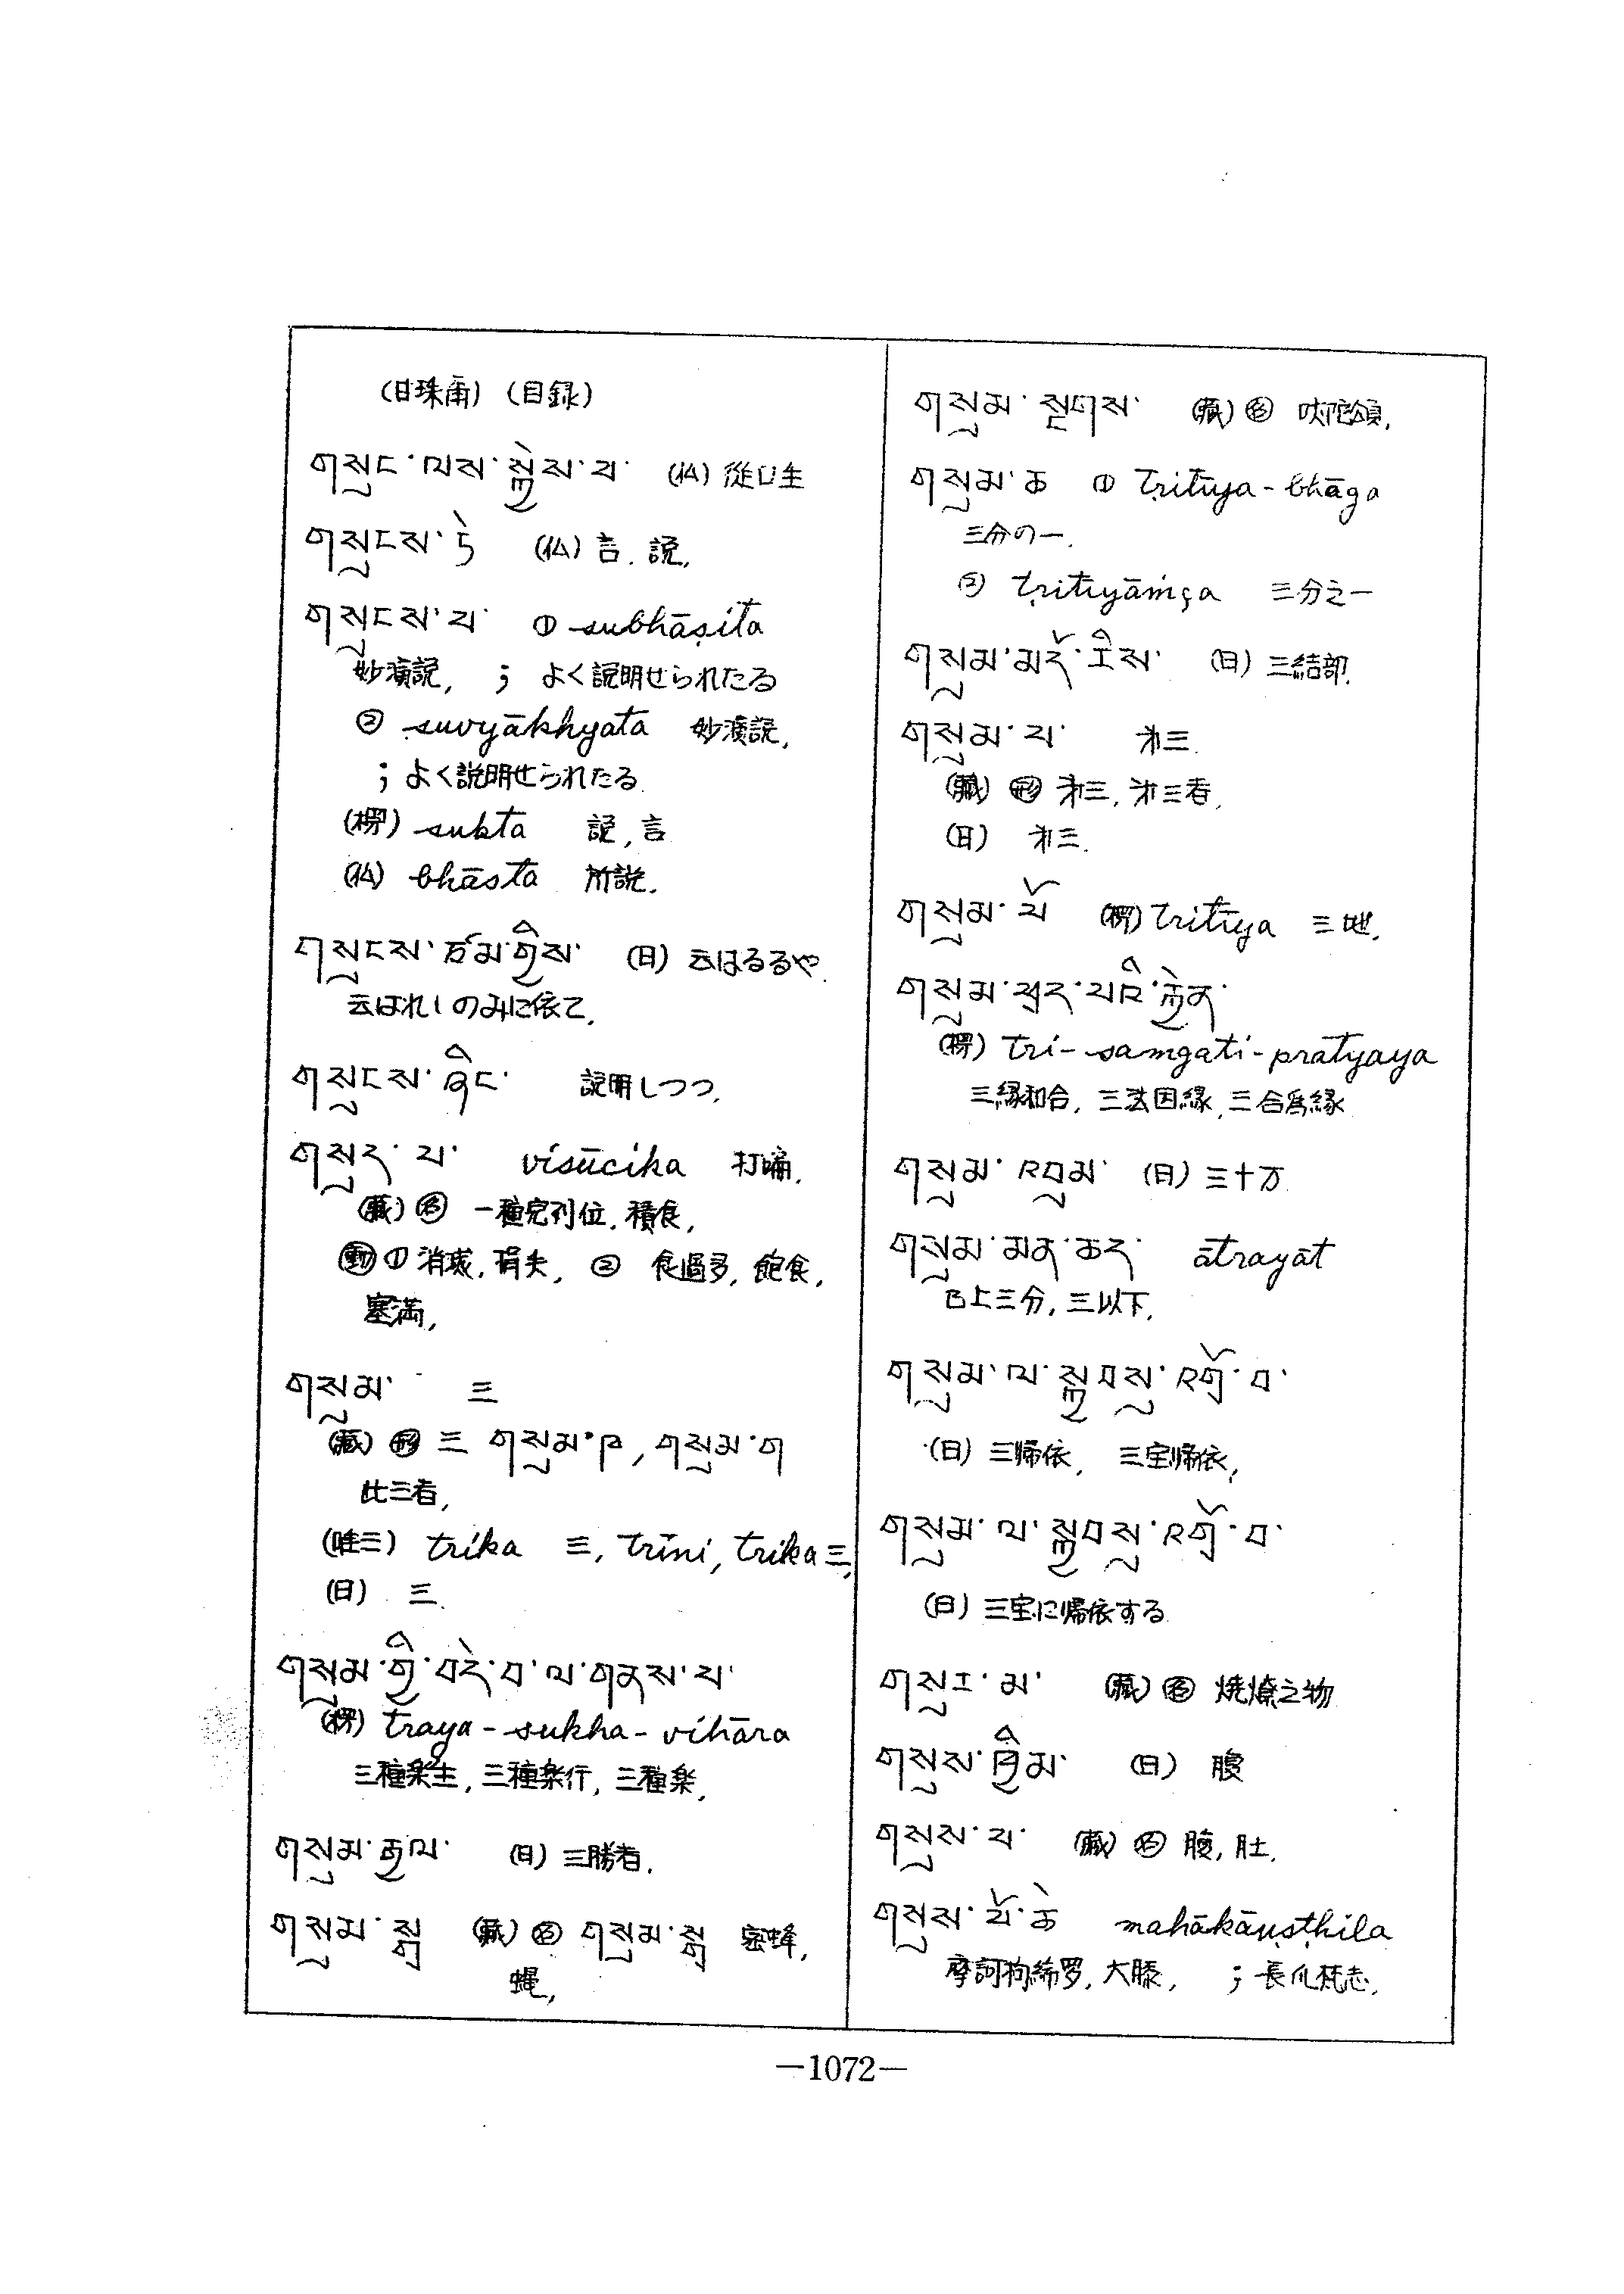 (甘珠甬) (目録)
གསུང་ལས་སྐྱེས་པ་ (仏) 從口生
གསུངས་ཏེ (仏) 言. 説.
གསུངས་པ་ ① subhāṣita
妙演説, ; よく説明せられたる
② suvyākhyata 妙演説,
; よく説明せられたる
(楞) sukta 記, 言
(仏) bhāsta 所説.
གསུངས་ཙམ་གྱིས་ (日) 云はるるや.
云はれしのみに依て.
གསུངས་ཞིང་ 説明しつつ.
གསུད་པ་ visūcika 打嗝.
(蔵) 名 積食,
動 ① 消滅, 損失, ② 食過多, 飽食,
塞満,
གསུམ་ 三
(蔵) 形 三 གསུམ་ཀ, གསུམ་ག
此三者,
(唯三) trika 三, trīni, trika 三,
(日) 三.
གསུམ་གྱི་བདེ་བ་ལ་གནས་པ་
(楞) traya-sukha-vihāra
三種楽生, 三種楽行, 三種楽,
གསུམ་རྒྱལ་ (日) 三勝者.
གསུམ་སྒྲ (蔵) 名 གསུམ་སྒྲ 密蜂,
蝿,
གསུམ་སྔགས་ (蔵) 名 吠陀頌,
གསུམ་ཆ ① tṛitīya-bhāga
三分の一.
② tṛitīyāṁça 三分之一
གསུམ་མདོ་ཟིས་ (日) 三結部.
གསུམ་པ་ 才三.
(蔵) 形 才三, 才三者,
(日) 才三.
གསུམ་པོ (楞) tritīya 三地.
གསུམ་ཕྲད་པའི་རྐྱེན་
(楞) tri-samgati-pratyaya
三縁和合, 三法因縁, 三合為縁
གསུམ་འབུམ་ (日) 三十万
གསུམ་མན་ཆད་ ātrayāt
已上三分, 三以下.
གསུམ་ལ་སྐྱབསུ་འགྲོ་བ་
(日) 三帰依, 三宝帰依,
གསུམ་ལ་སྐྱབསུ་འགྲོ་བ་
(日) 三宝に帰依する
གསུར་མ་ (蔵) 名 焼燎之物
གསུས་ཁྱིམ་ (日) 腹
གསུས་པ་ (蔵) 名 腹, 肚.
གསུས་པོ་ཆེ mahākāuṣṭhila
摩訶拘絺罗, 大膝, ; 長爪梵志.
—1072—